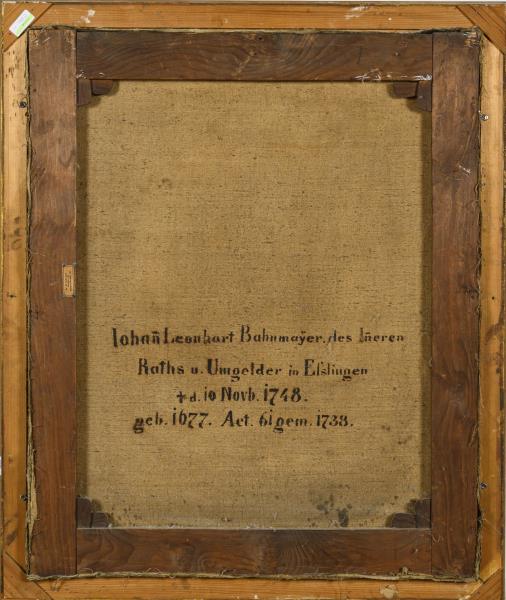 Iohan̄ Leonhart Bahnmaÿer, des In̄eren
Raths u. Umgelder in Eſslingen
† d. 10 Novb. 1748.
geb. 1677. Aet. 61 gem. 1738.